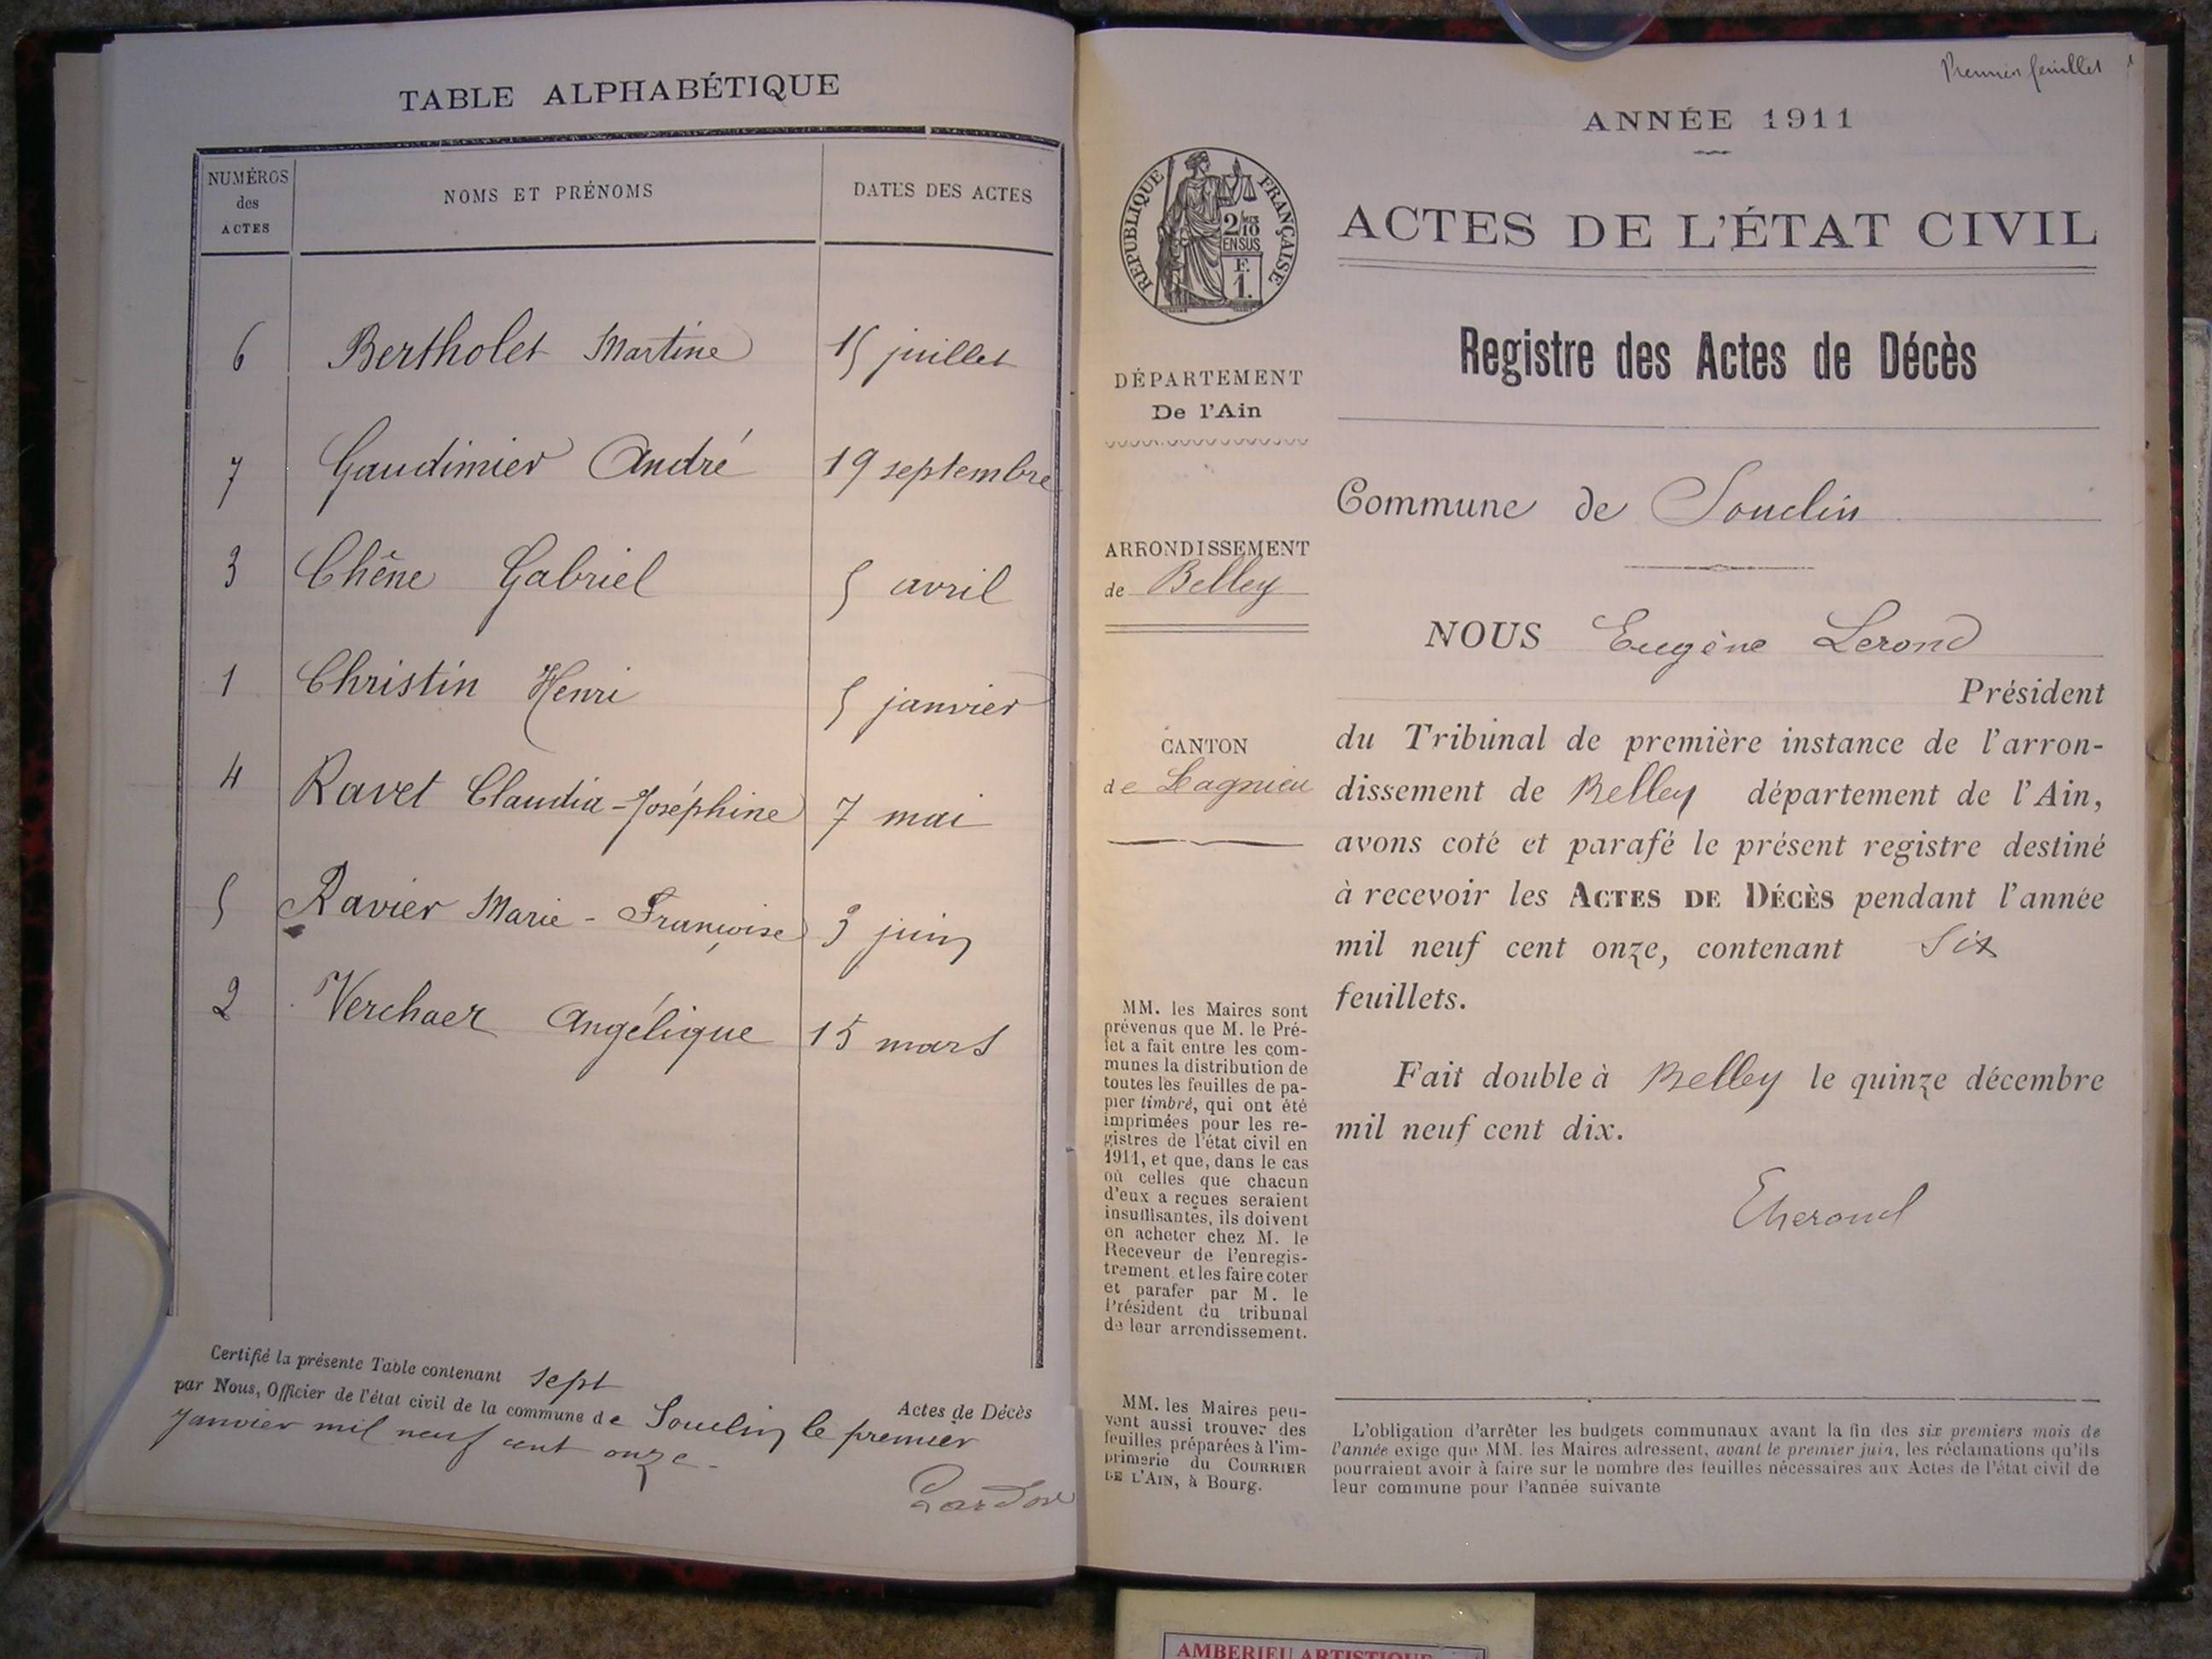 TABLE ALPHABÉTIQUE
NUMÉROS des ACTES
NOMS ET PRÉNOMS
DATES DES ACTES
6 Bertholet Martine 15 juillet
7 Gaudimier André 19 septembre
3 Chêne Gabriel 5 avril
1 Christin Henri 5 janvier
4 Ravet Claudia-Joséphine 7 mai
5 Ravier Marie-Françoise 3 juin
2 Verchaer Angélique 15 mars
Certifié la présente Table contenant sept Actes de Décès
par Nous, Officier de l'état civil de la commune de Souclin le premier
janvier mil neuf cent onze.
Premier feuillet
ANNÉE 1911
ACTES DE L'ÉTAT CIVIL
RÉPUBLIQUE FRANÇAISE
2/10
EN SUS
F.
1.
Registre des Actes de Décès
DÉPARTEMENT
De l'Ain
Commune de Souclin
ARRONDISSEMENT
de Belley
NOUS Eugène Lerond
Président
CANTON
de Lagnieu
du Tribunal de première instance de l'arron-
dissement de Belley département de l'Ain,
avons coté et parafé le présent registre destiné
à recevoir les ACTES DE DÉCÈS pendant l'année
mil neuf cent onze, contenant Six
feuillets.
Fait double à Belley le quinze décembre
mil neuf cent dix.
MM. les Maires sont
prévenus que M. le Pré-
fet a fait entre les com-
munes la distribution de
toutes les feuilles de pa-
pier timbré, qui ont été
imprimées pour les re-
gistres de l'état civil en
1911, et que, dans le cas
où celles que chacun
d'eux a reçues seraient
insuffisantes, ils doivent
en acheter chez M. le
Receveur de l'enregis-
trement et les faire coter
et parafer par M. le
Président du tribunal
de leur arrondissement.
MM. les Maires peu-
vent aussi trouver des
feuilles préparées à l'im-
primerie du COURRIER
DE L'AIN, à Bourg.
L'obligation d'arrêter les budgets communaux avant la fin des six premiers mois de
l'année exige que MM. les Maires adressent, avant le premier juin, les réclamations qu'ils
pourraient avoir à faire sur le nombre des feuilles nécessaires aux Actes de l'état civil de
leur commune pour l'année suivante
AMBERIEU ARTISTIQUE